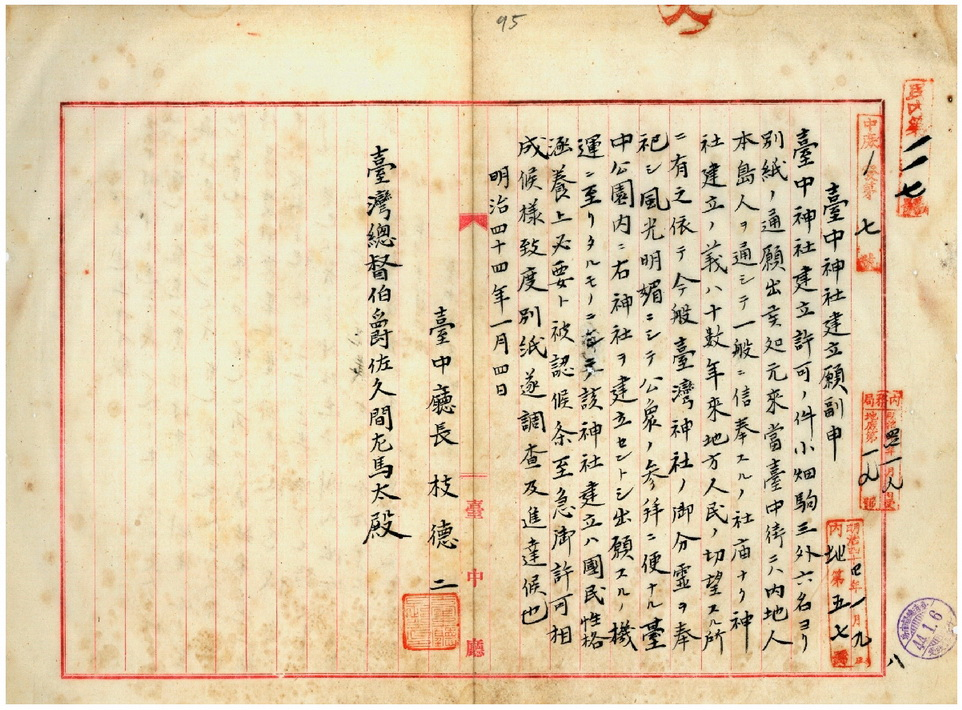 95
一一七
中庶
一七
號
臺中神社建立願副申
臺中神社建立許可ノ件小畑駒三外六名ヨリ
別紙ノ通願出候處元來當臺中街ニハ內地人
本島人ヲ通シテ一般ニ信奉スルノ社庙ナク神
社建立ノ義ハ十數年來地方人民ノ切望スル所
ニ有之依テ今般臺灣神社ノ御分靈ヲ奉
祀シ風光明媚ニシテ公衆ノ参拜ニ便ナル臺
中公園內ニ右神社ヲ建立セントシ出願スルノ機
運ニ至リタルモノニ該神社建立ハ國民性格
涵養上必要ト被認候条至急御許可相
成候樣致度別紙遂調查及進達候也
明治四十四年一月四日
臺中廳長枝德二
臺灣總督伯爵佐久間左馬太殿
臺中廳
內務局
地庶第一九號
明治四十四年一月九日
內地第五七號
44.1.6